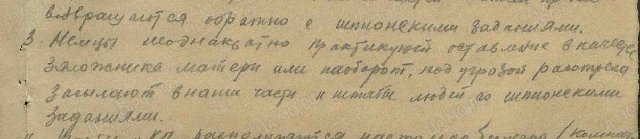 возвращаются обратно с шпионскими заданиями.
3. Немцы неоднакратно практикуют оставление в качестве
заложника матери или наоборот, под угрозой расстрела
засылают в наши части и штабы людей со шпионскими
заданиями.
располагаются настолько